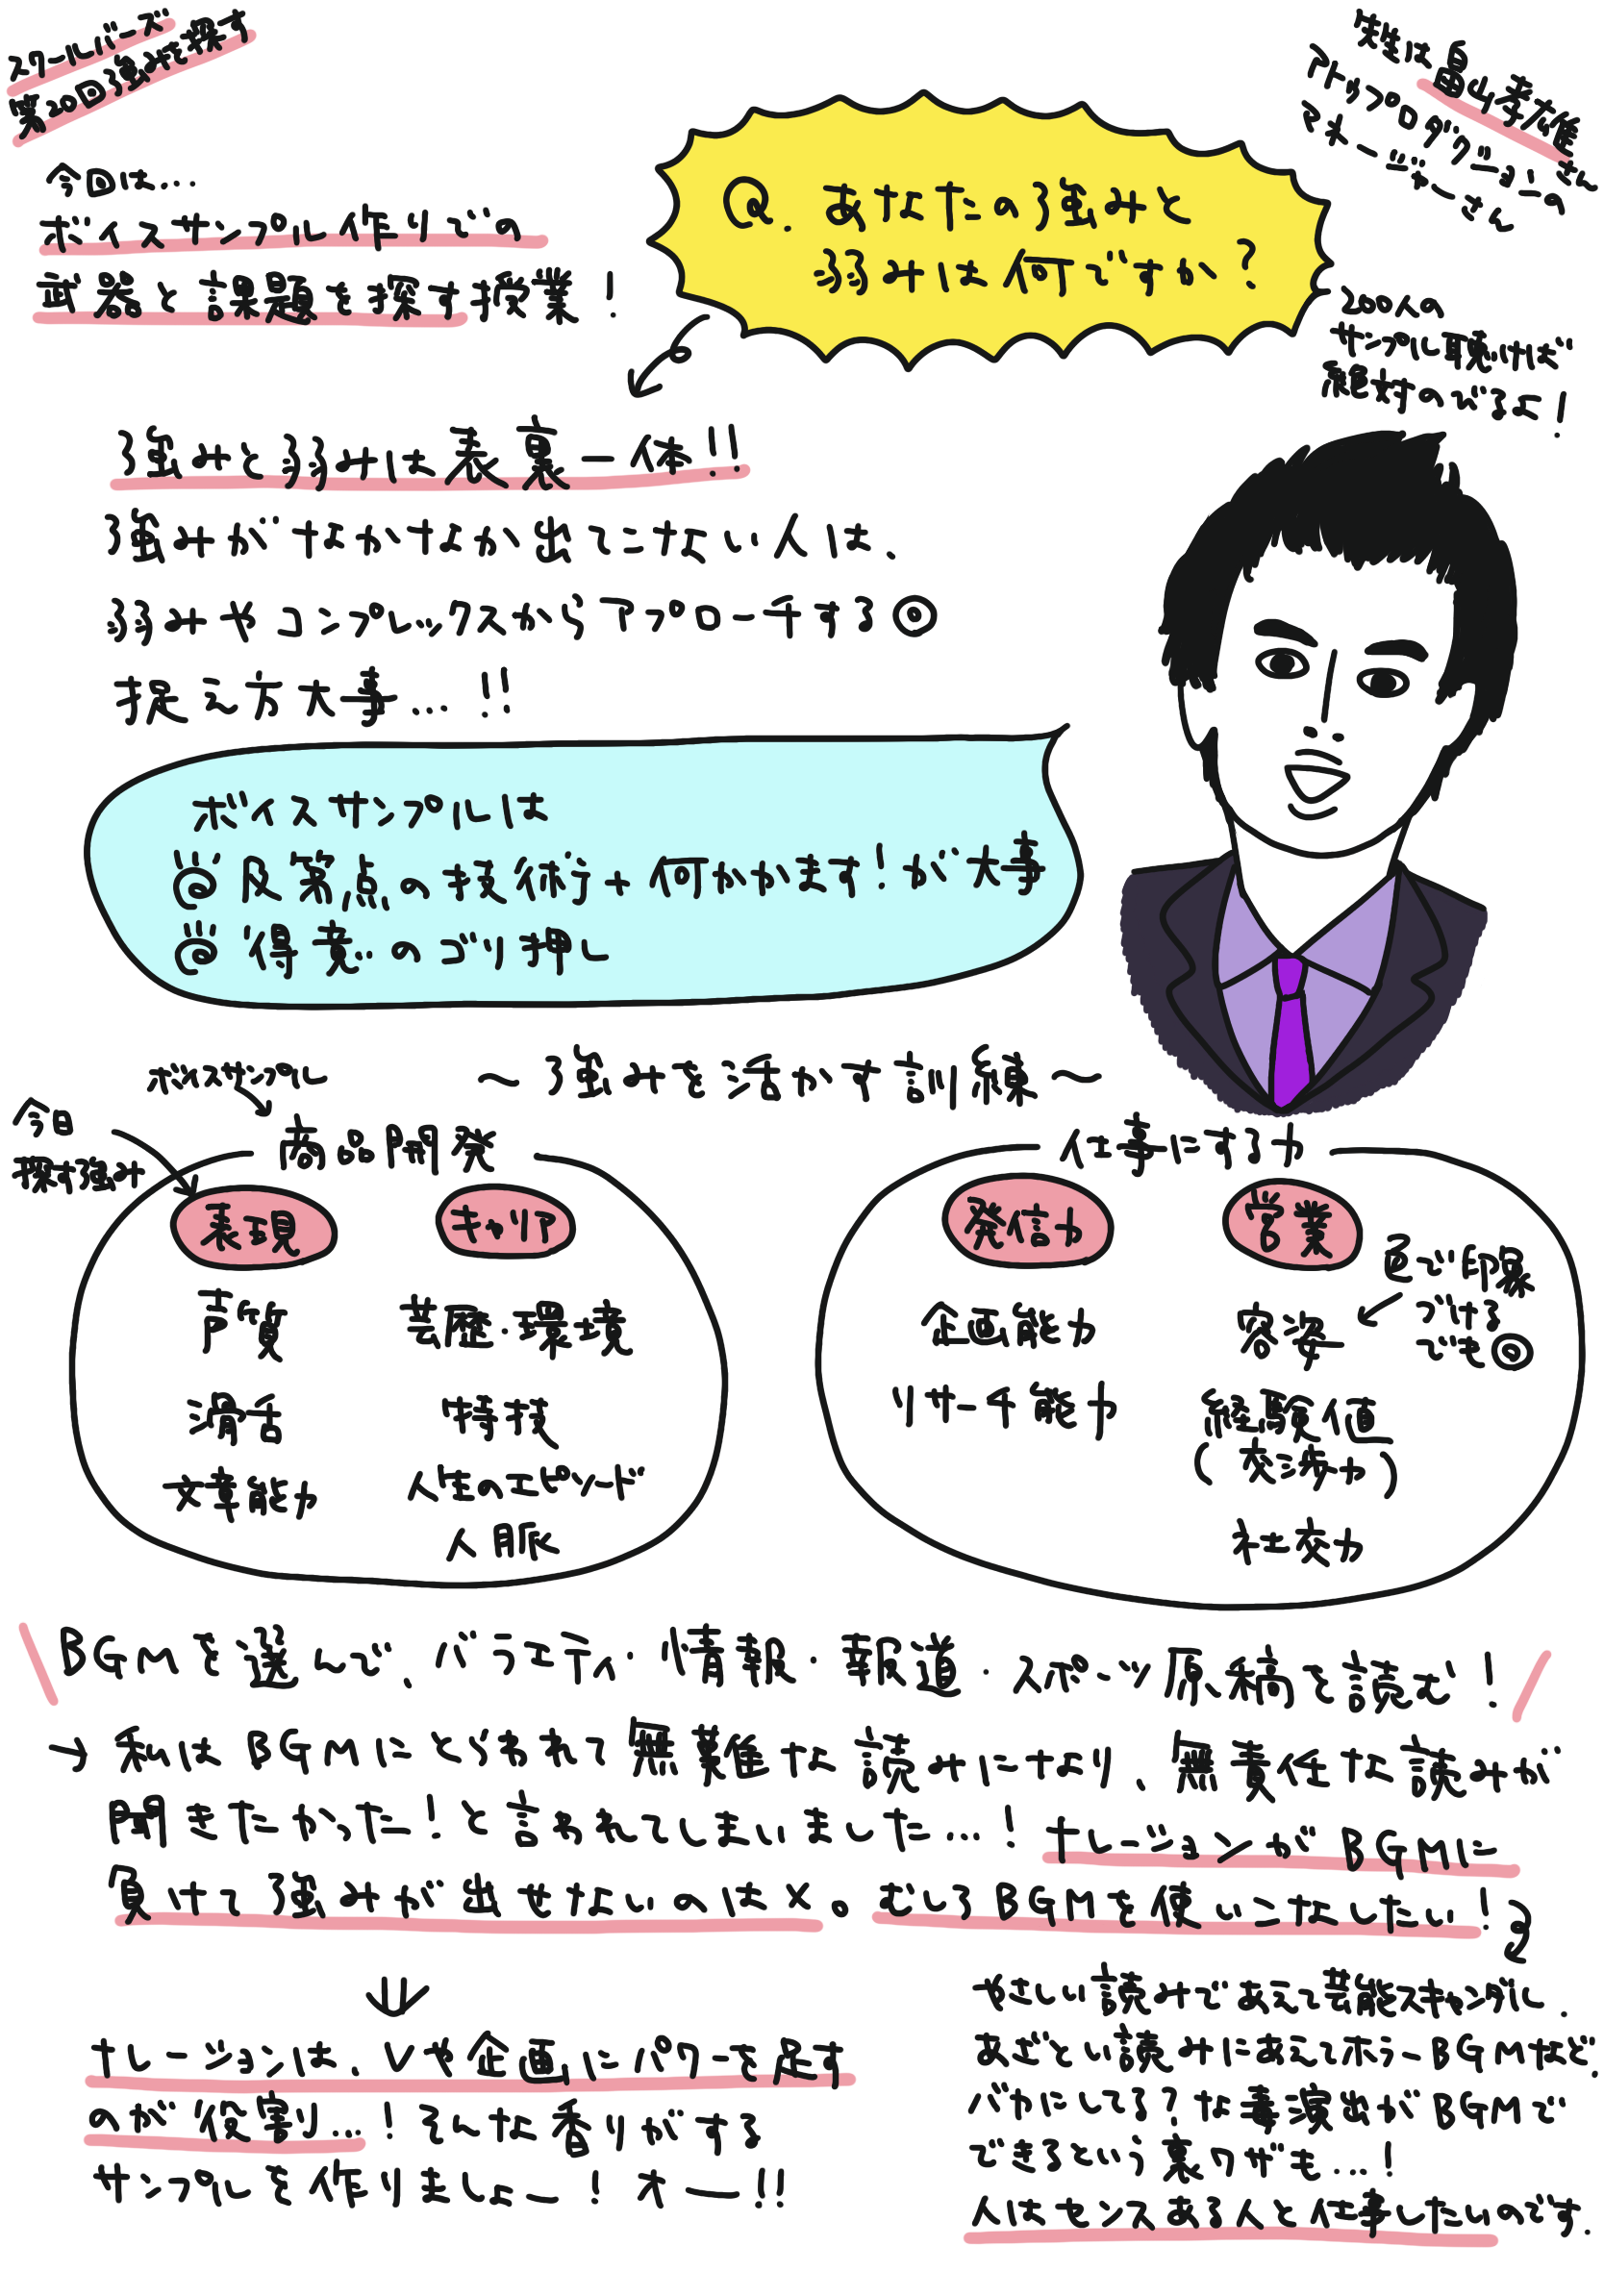 スクールバーズ
第20回強みを探す
先生は畠山孝雄さん
アトリプロダクションの
マネージャーさん
今回は...
ボイスサンプル作りでの
武器と課題を探す授業!
Q. あなたの強みと
弱みは何ですか?
200人の
サンプル聴けば
絶対のびるよ!
強みと弱みは表裏一体!!
強みがなかなか出てこない人は、
弱みやコンプレックスからアプローチする◎
捉え方大事...!!
ボイスサンプルは
及第点の技術+何かかます!が大事
得意のゴリ押し
〜強みを活かす訓練〜
ボイスサンプル
今日
探す強み
商品開発
表現
声質
滑舌
文章能力
キャリア
芸歴・環境
特技
人生のエピソード
人脈
仕事にする力
発信力
企画能力
リサーチ能力
営業
容姿
色で印象
づける
でも◎
経験値
(交渉力)
社交力
\BGMを選んで、バラエティ・情報・報道・スポーツ原稿を読む!/
→私はBGMにとらわれて無難な読みになり、無責任な読みが
聞きたかった!と言われてしまいました...!ナレーションがBGMに
負けて強みが出せないのは×。むしろBGMを使いこなしたい!
やさしい読みであえて芸能スキャンダル、
あざとい読みにあえてホラーBGMなど、
バカにしてる?な毒演出がBGMで
できるという裏ワザも...!
人はセンスある人と仕事したいのです.
ナレーションは、Vや企画にパワーを足す
のが役割...!そんな香りがする
サンプルを作りましょー!オー!!